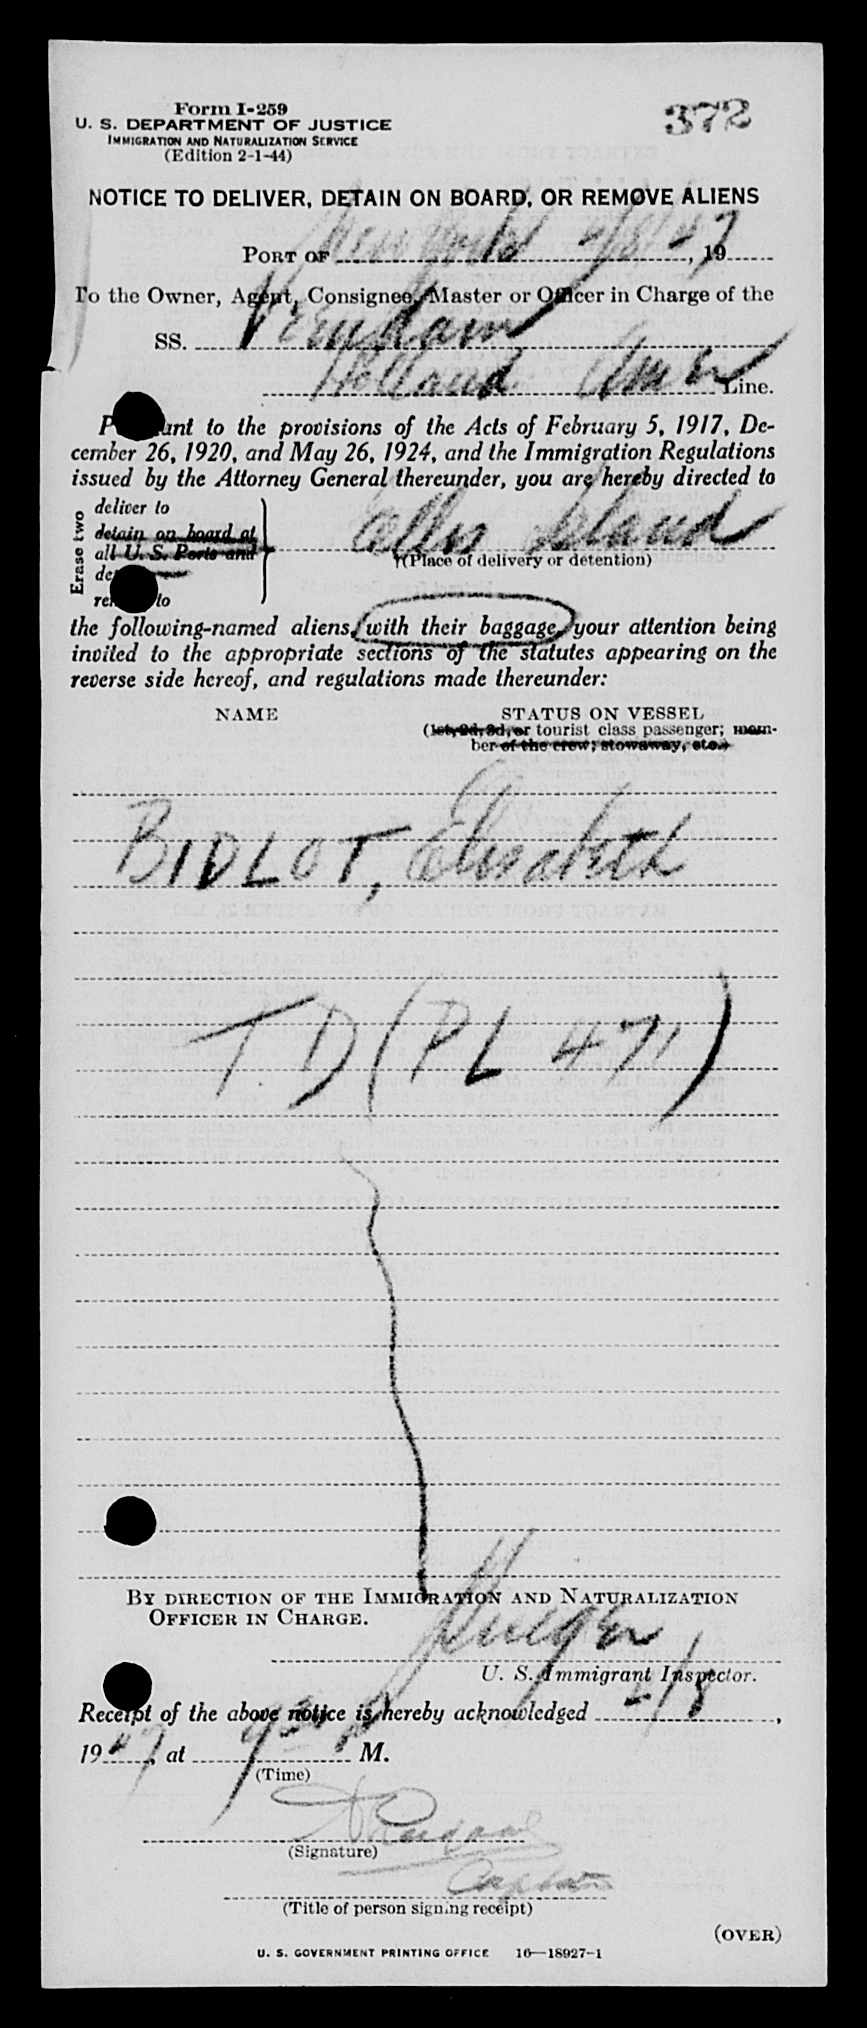 Form I-259
U. S. DEPARTMENT OF JUSTICE
IMMIGRATION AND NATURALIZATION SERVICE
(Edition 2-1-44)
372
NOTICE TO DELIVER, DETAIN ON BOARD, OR REMOVE ALIENS
PORT OF New York 2/8/47, 19
To the Owner, Agent, Consignee, Master or Officer in Charge of the
SS. Veendam
Holland Amer Line.
Pursuant to the provisions of the Acts of February 5, 1917, De-
cember 26, 1920, and May 26, 1924, and the Immigration Regulations
issued by the Attorney General thereunder, you are hereby directed to
Erase two
deliver to
detain on board at
all U. S. Ports and
Ellis Island
(Place of delivery or detention)
remove to
the following-named aliens, with their baggage, your attention being
invited to the appropriate sections of the statutes appearing on the
reverse side hereof, and regulations made thereunder:
NAME
STATUS ON VESSEL
(1st, 2d, 3d, or tourist class passenger; mem-
ber of the crew; stowaway, etc.)
BIDLOT, Elisabeth
T. D (PL 471)
BY DIRECTION OF THE IMMIGRATION AND NATURALIZATION
OFFICER IN CHARGE.
U. S. Immigrant Inspector.
Receipt of the above notice is hereby acknowledged 2/8,
19 47, at M.
(Time)
(Signature)
(Title of person signing receipt)
(OVER)
U. S. GOVERNMENT PRINTING OFFICE 16—18927-1